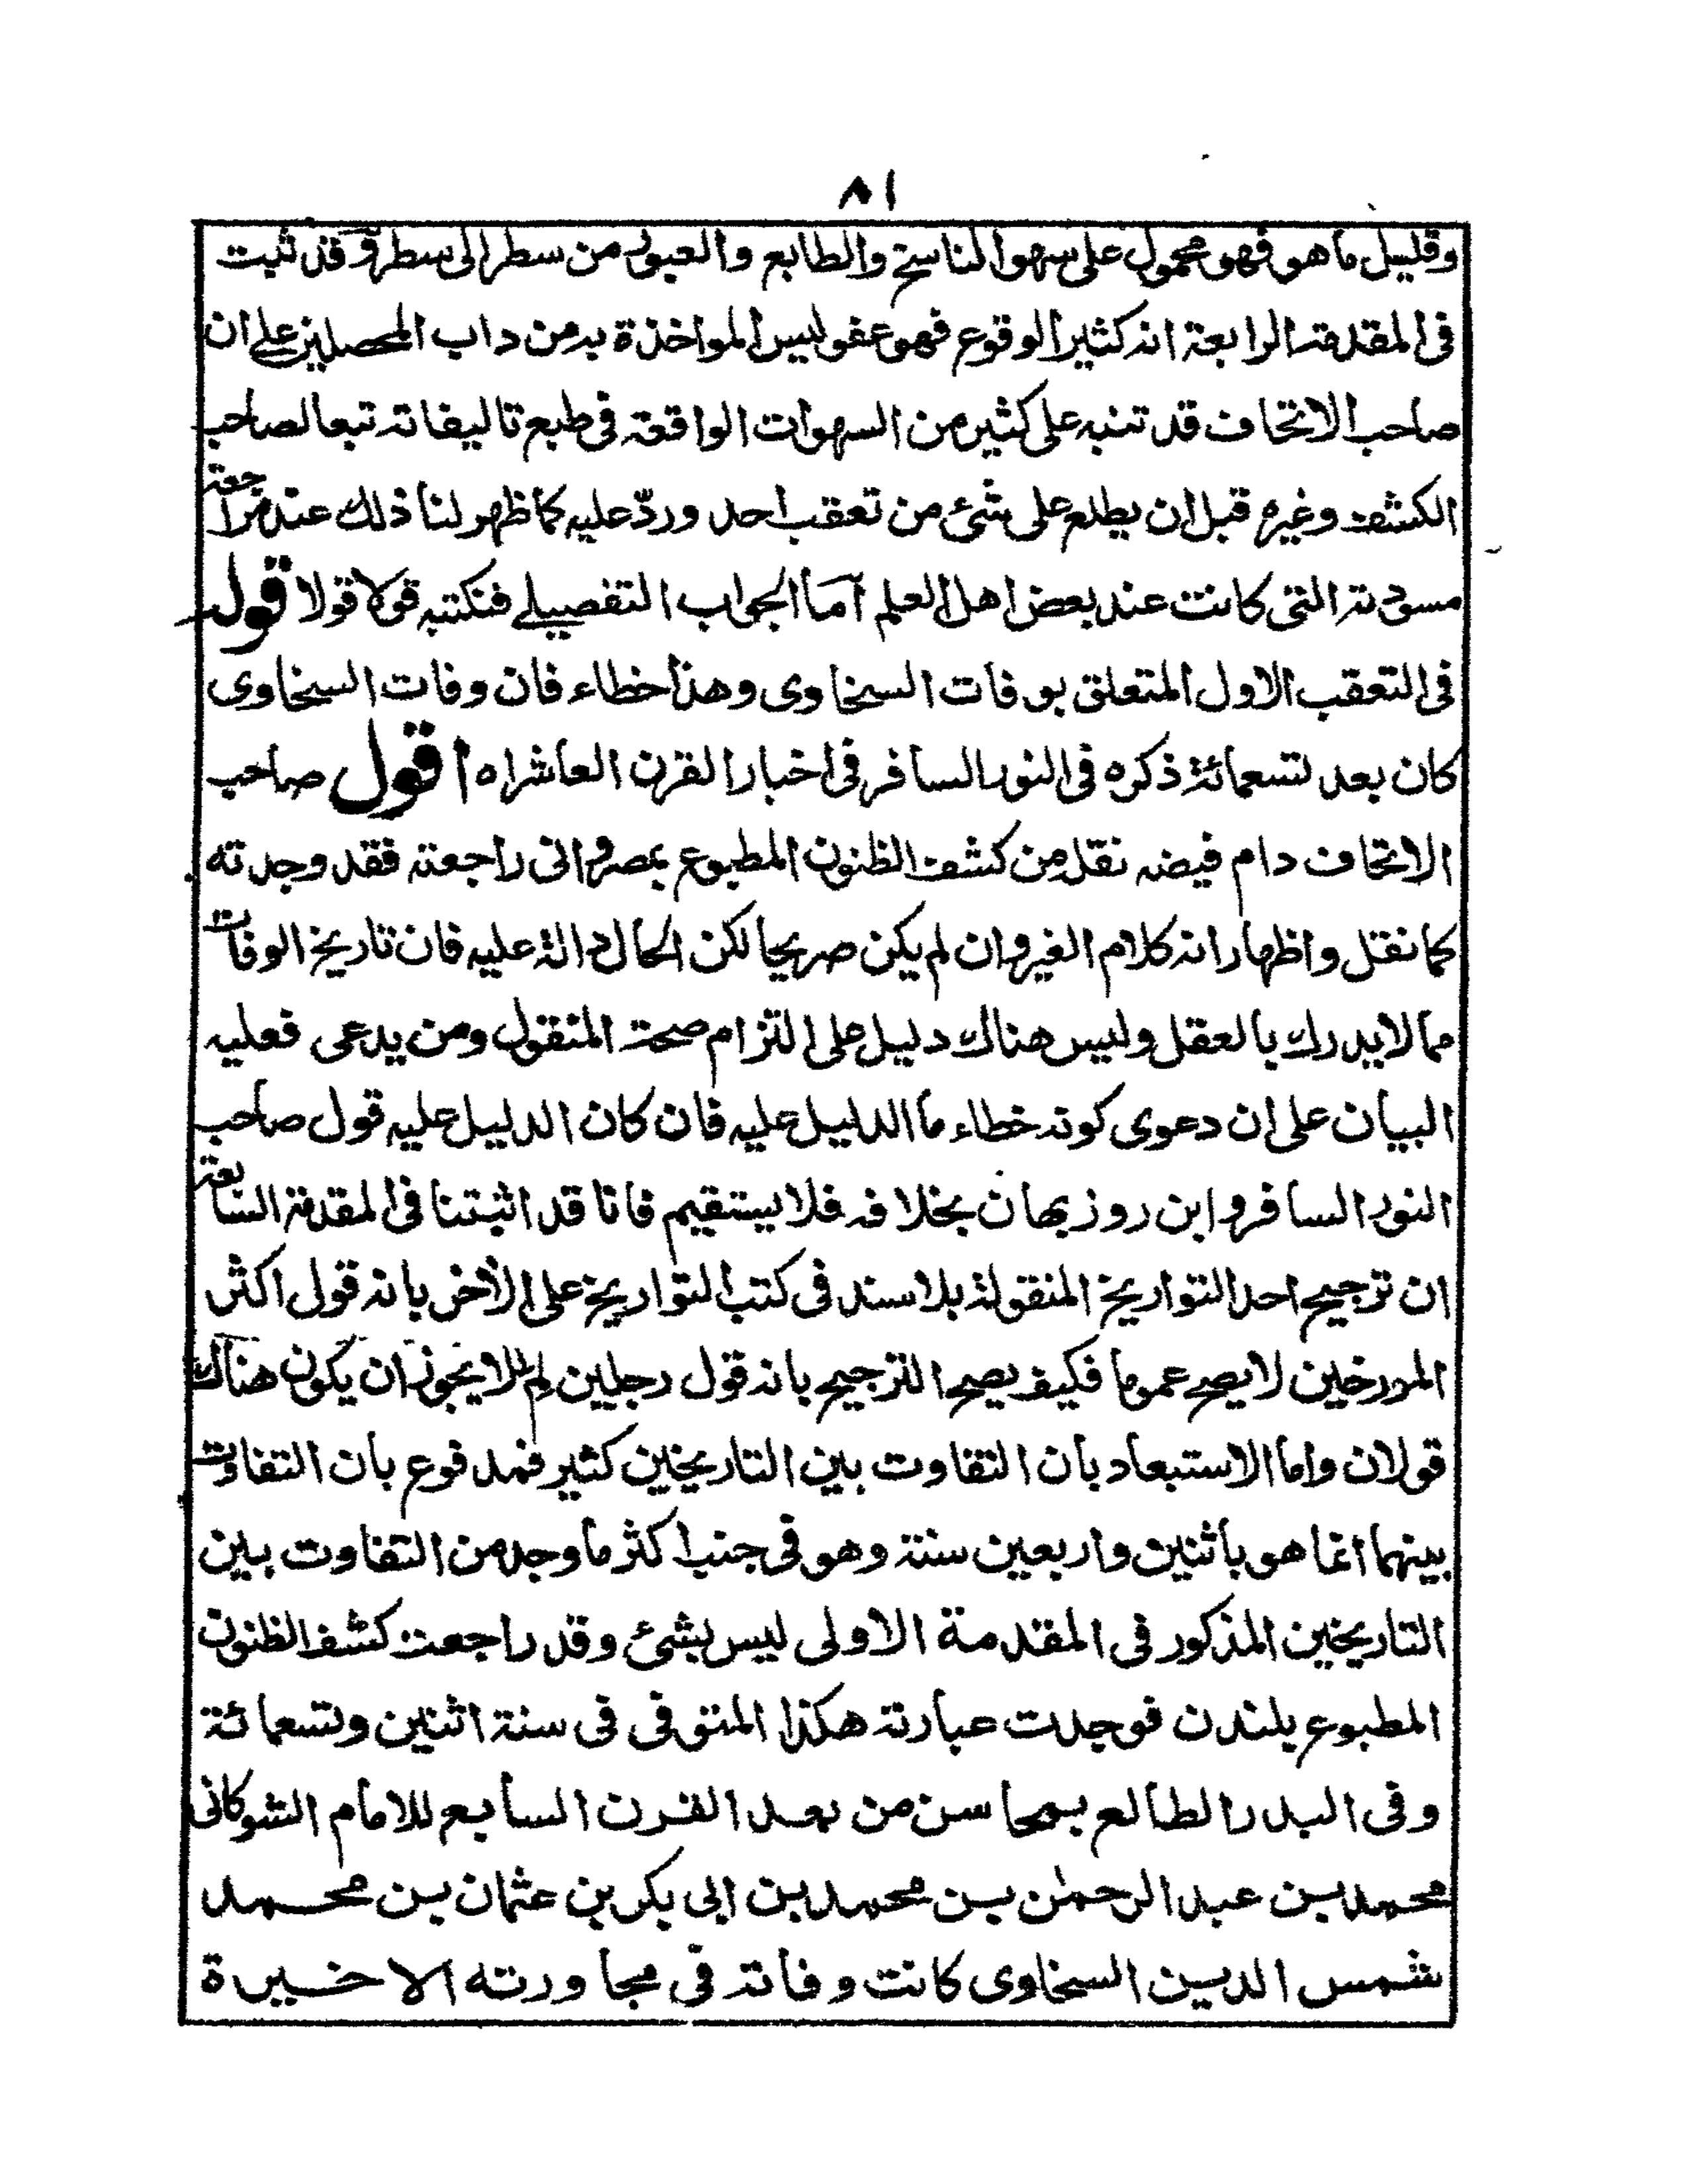 ٨١
وقليل ما هو فهو محمول على سهو الناسخ والطابع والعبور من سطر الى سطر وقد ثبت
فى المقدمة الرابعة انه كثير الوقوع فهو عفو ليس المواخذة به من داب المحصلين على ان
صاحب الاتحاف قد تنبه على كثير من السهوات الواقعة فى طبع تاليفاته تبعا لصاحب
الكشف وغيره قبل ان يطلع على شئ من تعقب احد وردّ عليه كما ظهر لنا ذلك عند مراجعة
مسودته التى كانت عند بعض اهل العلم آما الجواب التفصيلے فنكتبه قولا قولا قوله
فى التعقب الاول المتعلق بوفات السخاوى وهذا خطاء فان وفات السخاوى
كان بعد تسعمائة ذكره فى النور السافر فى اخبار القرن العاشر اه اقول صاحب
الاتحاف دام فيضه نقل من كشف الظنون المطبوع بمصر وانى راجعته فقد وجدته
كما نقل واظهار انه كلام الغير وان لم يكن صريحا لكن الحال دالة عليه فان تاريخ الوفات
مما لا يدرك بالعقل وليس هناك دليل على التزام صحة المنقول ومن يدعى فعليه
البيان على ان دعوى كونه خطاء ما الدليل عليه فان كان الدليل عليه قول صاحب
النور السافر وابن روزبهان بخلافه فلا يستقيم فانا قد اثبتنا فى المقدمة السابعة
ان ترجيح احد التواريخ المنقولة بلا سند فى كتب التواريخ على الآخر بانه قول اكثر
المورخين لا يصح عموما فكيف يصح الترجيح بانه قول رجلين لم لا يجوز ان يكون هناك
قولان واما الاستبعاد بان التفاوت بين التاريخين كثير فمدفوع بان التفاوت
بينهما انما هو باثنين واربعين سنة وهو فى جنب اكثر ما وجد من التفاوت بين
التاريخين المذكور فى المقدمة الاولى ليس بشئ وقد راجعت كشف الظنون
المطبوع بلندن فوجدت عبارته هكذا المتوفى فى سنة اثنين وتسعمائة
وفى البدر الطالع بمحاسن من بعد القرن السابع للامام الشوكانى
محمد بن عبد الرحمٰن بن محمد بن ابى بكر بن عثمان بن محمد
شمس الدين السخاوى كانت وفاته فى مجاورته الاخيرة